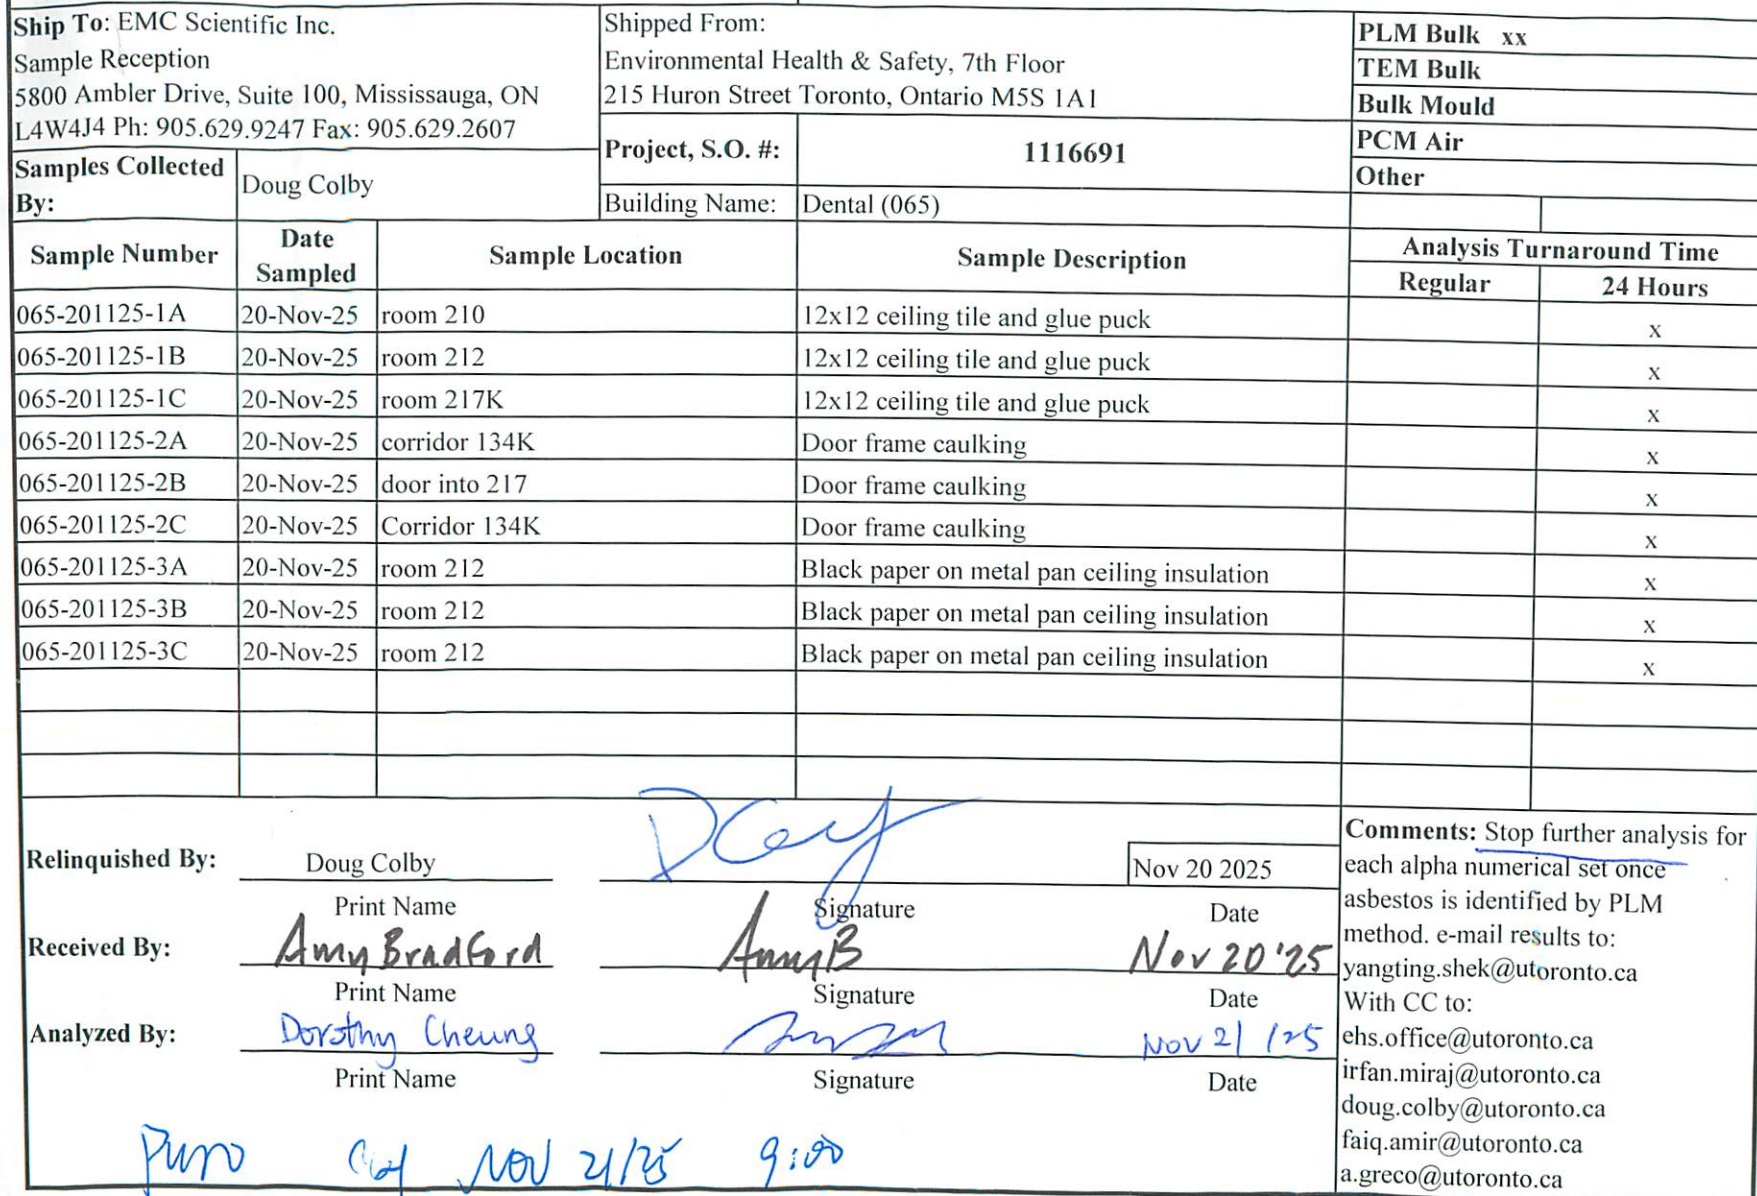 Ship To: EMC Scientific Inc.
Sample Reception
5800 Ambler Drive, Suite 100, Mississauga, ON
L4W4J4 Ph: 905.629.9247 Fax: 905.629.2607
Shipped From:
Environmental Health & Safety, 7th Floor
215 Huron Street Toronto, Ontario M5S 1A1
PLM Bulk xx
TEM Bulk
Bulk Mould
PCM Air
Other
Samples Collected By: Doug Colby
Project, S.O. #: 1116691
Building Name: Dental (065)
Sample Number Date Sampled Sample Location Sample Description Analysis Turnaround Time
Regular 24 Hours
065-201125-1A 20-Nov-25 room 210 12x12 ceiling tile and glue puck x
065-201125-1B 20-Nov-25 room 212 12x12 ceiling tile and glue puck x
065-201125-1C 20-Nov-25 room 217K 12x12 ceiling tile and glue puck x
065-201125-2A 20-Nov-25 corridor 134K Door frame caulking x
065-201125-2B 20-Nov-25 door into 217 Door frame caulking x
065-201125-2C 20-Nov-25 Corridor 134K Door frame caulking x
065-201125-3A 20-Nov-25 room 212 Black paper on metal pan ceiling insulation x
065-201125-3B 20-Nov-25 room 212 Black paper on metal pan ceiling insulation x
065-201125-3C 20-Nov-25 room 212 Black paper on metal pan ceiling insulation x
Relinquished By: Doug Colby Nov 20 2025
Print Name Signature Date
Received By: Amy Bradford AmyB Nov 20 '25
Print Name Signature Date
Analyzed By: Dorothy Cheung Nov 21 /25
Print Name Signature Date
Nov 21/25 9:00
Comments: Stop further analysis for
each alpha numerical set once
asbestos is identified by PLM
method. e-mail results to:
yangting.shek@utoronto.ca
With CC to:
ehs.office@utoronto.ca
irfan.miraj@utoronto.ca
doug.colby@utoronto.ca
faiq.amir@utoronto.ca
a.greco@utoronto.ca